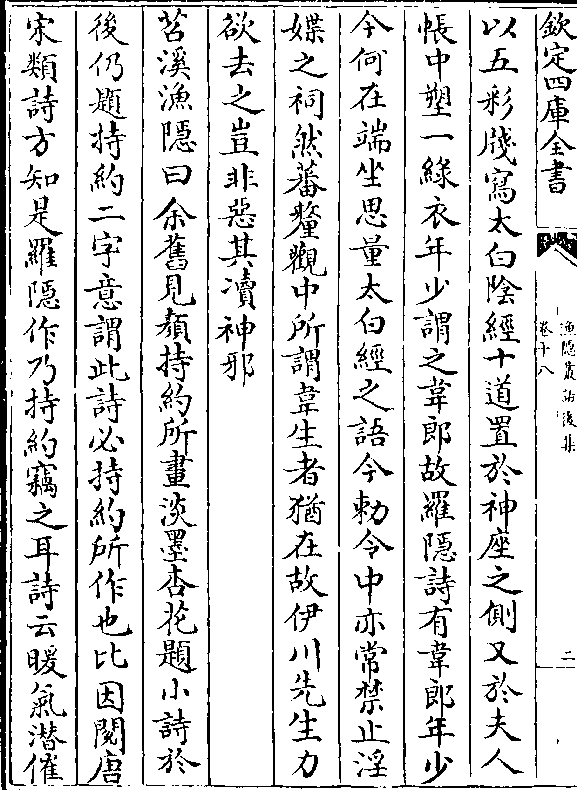 欽定四庫全書
漁隱叢話後集
卷十八
二
以五彩牋寫太白陰經十道置於神座之側又於夫人
帳中塑一綠衣年少謂之韋郎故羅隱詩有韋郎年少
今何在端坐思量太白經之語今勅令中亦常禁止淫
媟之祠然蕃釐觀中所謂韋生者猶在故伊川先生力
欲去之豈非惡其凟神邪
苕溪漁隱曰余舊見顔持約所畫淡墨杏花題小詩於
後仍題持約二字意謂此詩必持約所作也比因閱唐
宋類詩方知是羅隱作乃持約竊之耳詩云暖氣潜催